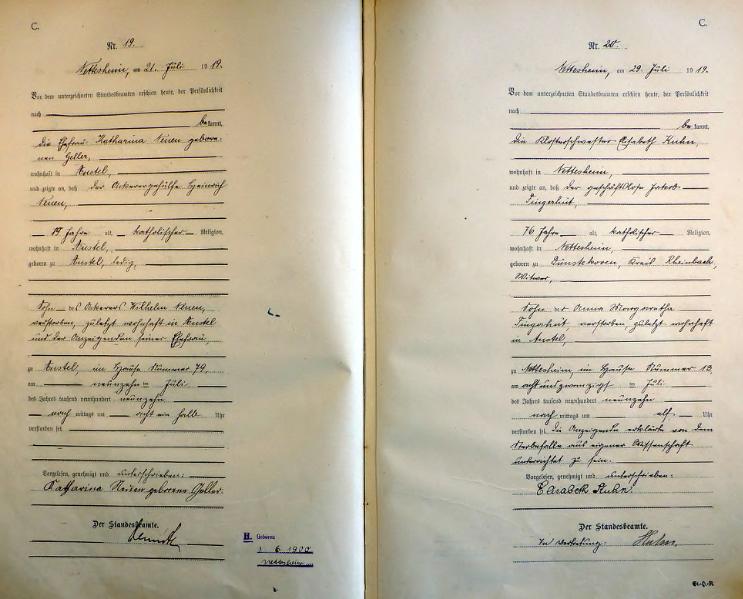 C.
Nr. 19.
Nettesheim, am 21. Juli 1919.
Vor dem unterzeichneten Standesbeamten erschien heute, der Persönlichkeit
nach
bekannt,
die Ehefrau Katharina Neuen gebore-
nen Geller,
wohnhaft in Anstel,
und zeigte an, daß der Ackerergehülfe Heinrich
Neuen,
19 Jahre alt, katholischer Religion,
wohnhaft in Anstel,
geboren zu Anstel, ledig,
Sohn des Ackerers Wilhelm Neuen,
verstorben, zuletzt wohnhaft in Anstel
und der Anzeigenden seiner Ehefrau,
zu Anstel, im Hause Nummer 79,
am neunzehn ten Juli
des Jahres tausend neunhundert neunzehn
nach mittags um acht ein halb Uhr
verstorben sei.
Vorgelesen, genehmigt und unterschrieben:
Katharina Neuen geborene Geller.
Der Standesbeamte.
H. Geboren
1. 6. 1900
Nettesheim
C.
Nr. 20.
Nettesheim, am 29. Juli 1919.
Vor dem unterzeichneten Standesbeamten erschien heute, der Persönlichkeit
nach
bekannt,
die Klosterschwester Elisabeth Kuhn,
wohnhaft in Nettesheim,
und zeigte an, daß der geschäftslose Jakob
Fingerhut,
76 Jahre alt, katholischer Religion,
wohnhaft in Nettesheim,
geboren zu Dünstekoven, Kreis Rheinbach,
Witwer,
Sohn der Anna Margaretha
Fingerhut verstorben, zuletzt wohnhaft
in Anstel,
zu Nettesheim, im Hause Nummer 13,
am achtundzwanzigsten Juli
des Jahres tausend neunhundert neunzehn
nach mittags um elf Uhr
verstorben sei. Die Anzeigende erklärte von dem
Sterbefalle aus eigener Wissenschaft
unterrichtet zu sein.
Vorgelesen, genehmigt und unterschrieben:
Kuhn.
Der Standesbeamte.
In Vertretung: